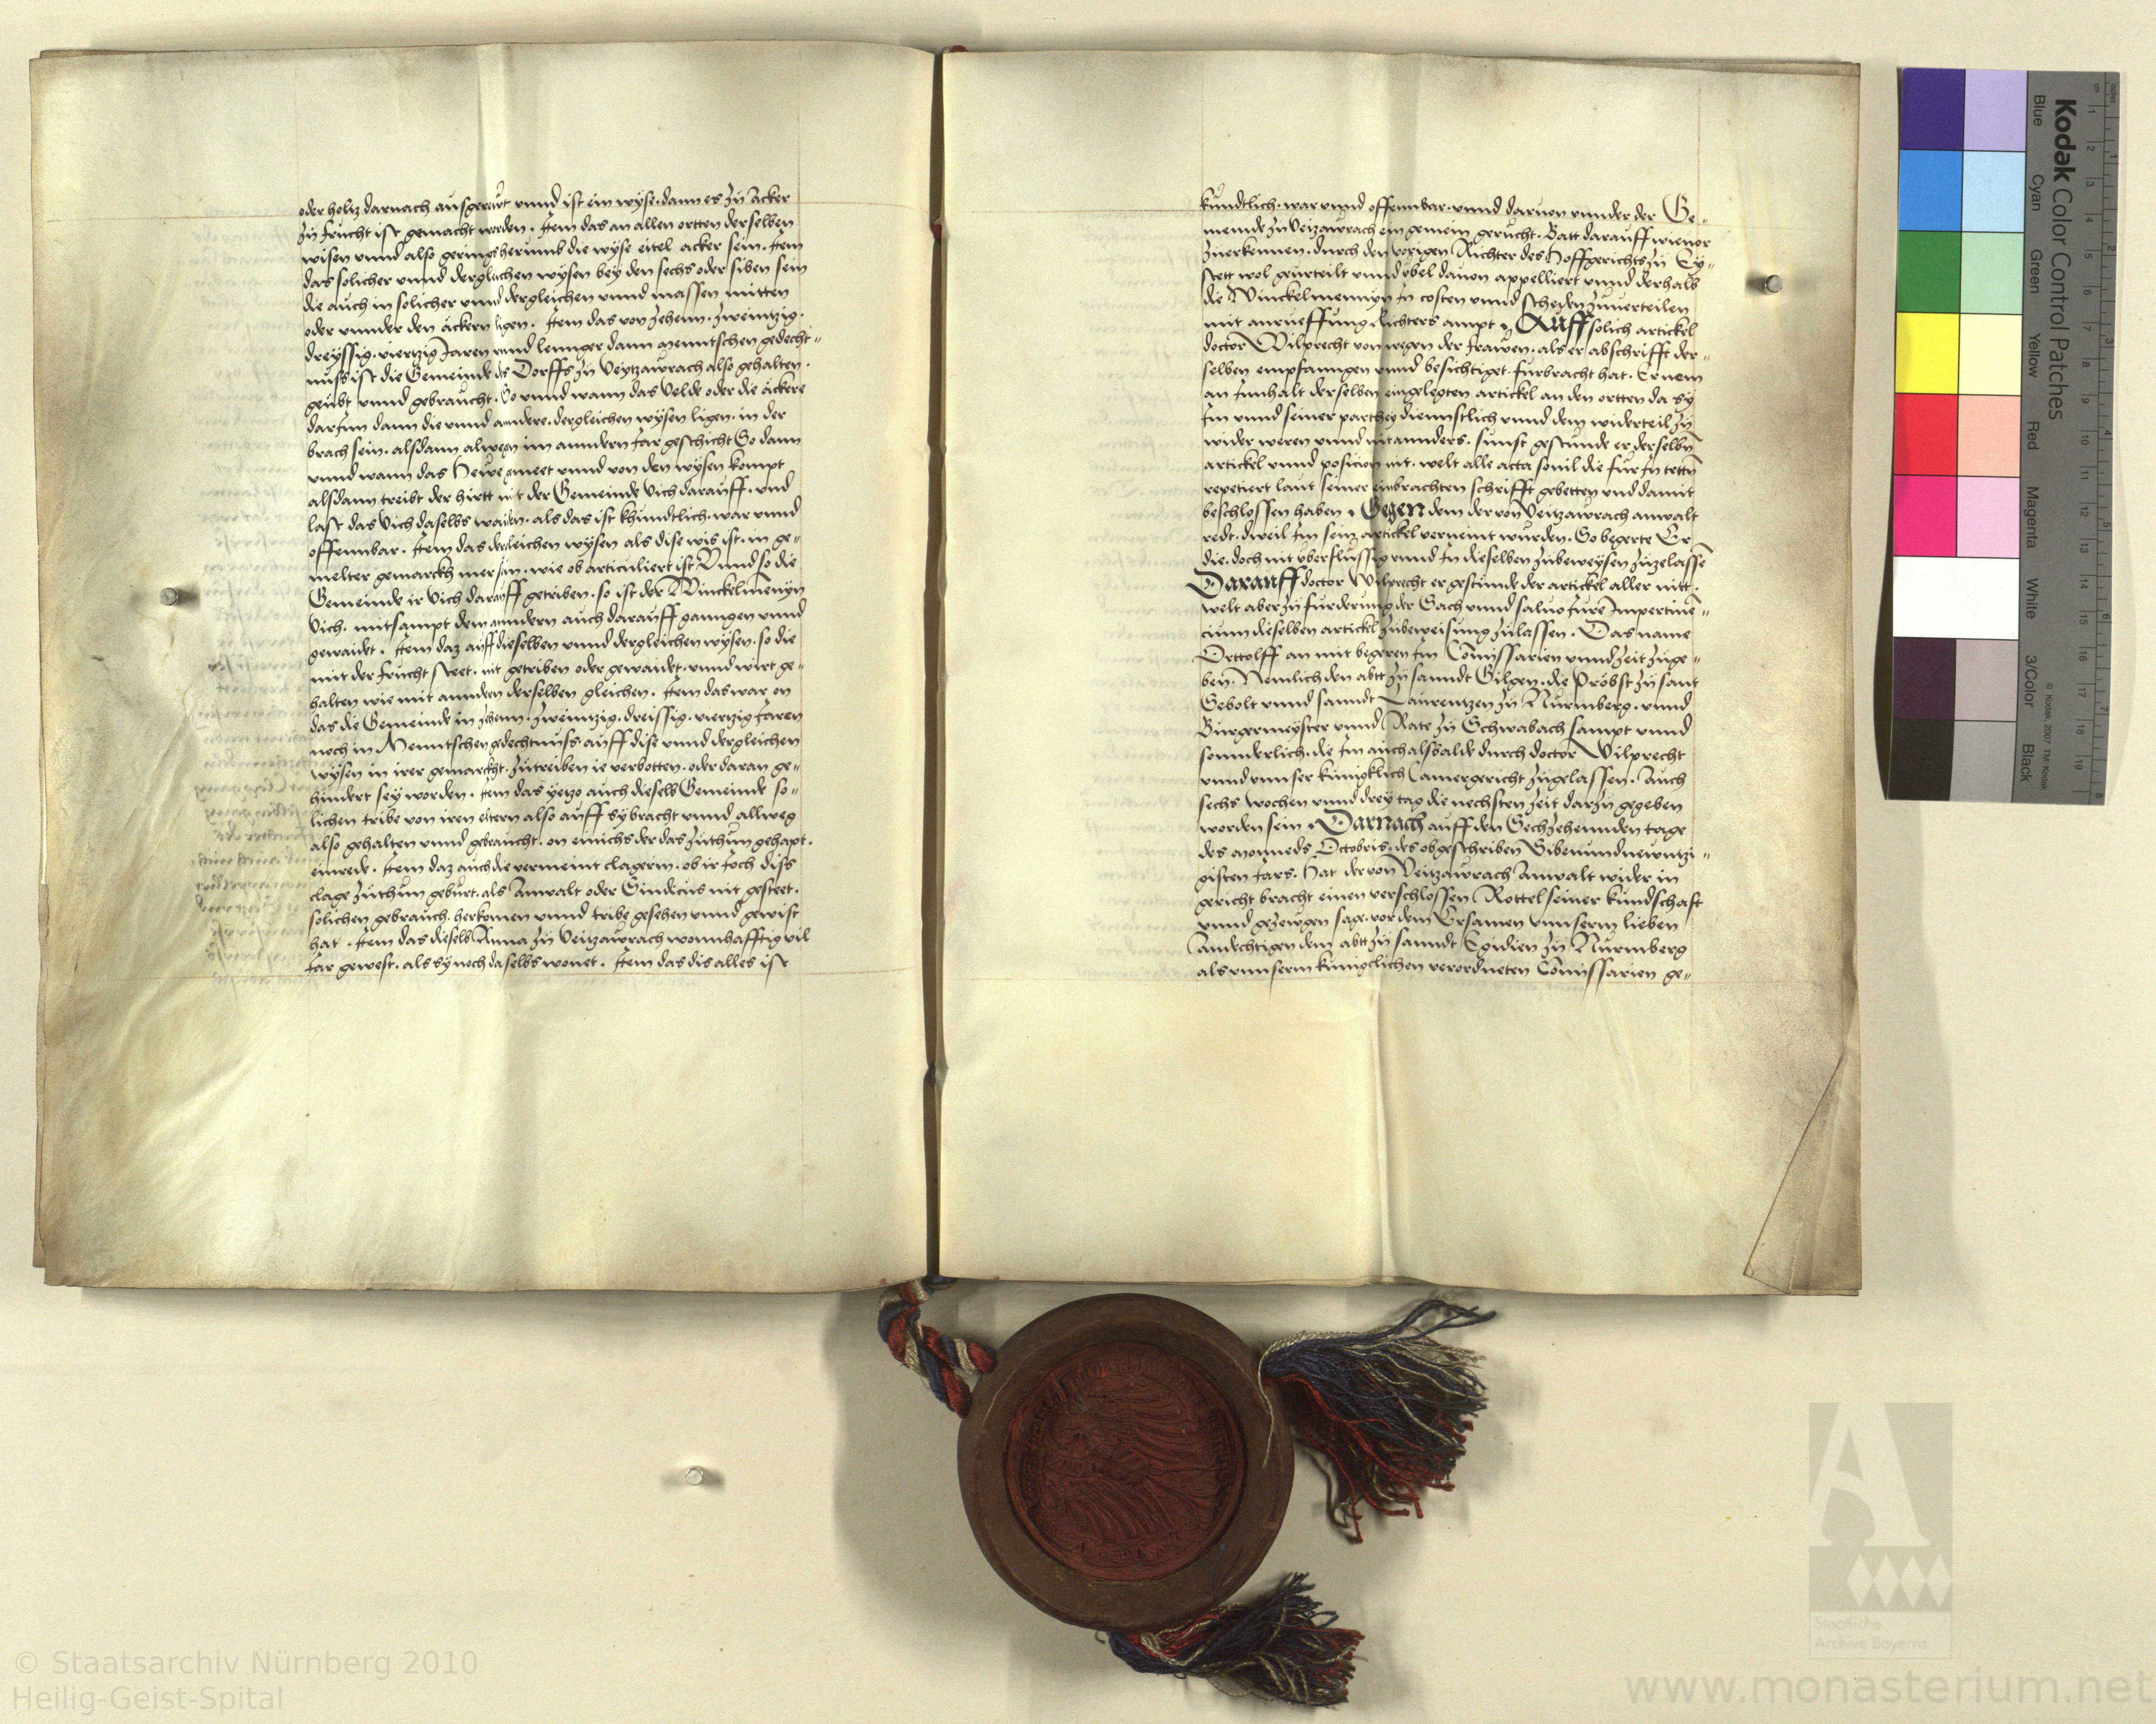 oder holtz darnach ausgereut unnd ist ein wyse. dann es zu Acker
zu frucht ist gemacht worden. Item das an allen ortten derselben
wisen unnd also gerings herumb die wyse eitel acker sein. Item
das solicher unnd derglichen wysen bey den sechs oder siben sein
die auch in solicher unnd dergleichen unnd massen mitten
oder unnder den äckern ligen. Item das von zehenn. zweintzig.
dreyssig. viertzig Jaren unnd lennger dann menntschen gedecht„
nuss ist die Gemeinde des Dorffs zu Veytzawrach also gehalten.
geübt unnd gebraucht. So unnd wann das Velde oder die äckere
darInn dann die unnd anndere. dergleichen wysen ligen. in der
brach sein. alsdann alwegen im anndern Jar geschicht So dann
unnd wann das Hewe gmeet unnd von den wysen kompt
alsdann treibt der hirtt mit der Gemeinde Vich darauff. und
lasst das Vich daselbs waiden. als das ist khundtlich. war unnd
offennbar. Item das dergleichen wysen als dise wis ist. in ge„
melter gemarckh mer sein. wie ob articuliert ist Unnd so die
Gemeinde ir Vich darauff getriben. so ist der Winckelmenyn
Vich. mitsampt dem anndern auch darauff ganngen unnd
gewaidet. Item daz auff dieselben unnd dergleichen wysen. so die
mit der frucht steet. nit getriben oder gewaidet. unnd wirt ge„
halten wie mit anndern derselben gleichen. Item das war on
das die Gemeinde in zehenn. zweintzig. dreissig. viertzig Jaren
noch in Menntschen gedechtnuss auff dise unnd dergleichen
wysen in irer gemarckht. zutreiben ie verbotten. oder daran ge„
hindert sey worden. Item das yetzo auch dieselb Gemeinde so„
lichen tribe von iren eltern also auff sy bracht unnd allweg
also gehalten unnd gebraucht. on einichs der das zuthun gehapt.
einrede. Item daz auch die vermeint clagerin. ob ir Joch diss
clage zuthun geburt. als Anwalt oder Sindicus nit gesteet.
solichen gebrauch. herkomen unnd tribe gesehen unnd gewist
hat. Item das dieselb Anna zu Veitzawrach wonnhafftig vil
Jar gewest. als sy noch daselbs wonet. Item das dis alles ist
kundtlich. war unnd offennbar. unnd darvon unnder der Ge„
meinde zu Veitzawrach ein gemein gerucht. Batt darauff wievor
zuerkennen. durch den vorigen Richter des Hoffgerichts zu Ey„
stett wol geurteilt unnd übel davon appelliert unnd derhalb
die Winckelmennyn In costen unnd scheden zuverteilen
mit anrueffung Richters ampt Auff solich artickel
doctor Wilprecht von wegen der frawen. als er abschrifft der„
selben empfanngen unnd besichtiget. furbracht hat. Er nem
an Innhalt derselben eingelegten artickel an den ortten da sy
Im unnd seiner parthey diennstlich unnd dem widerteil zu
wider weren unnd nit annders. sunst gestunde er derselbn
artickel unnd posicion nit. welt alle acta sovil die fur In tettn
repetiert laut seiner einbrachten schrifft gebetten und damit
beschlossen haben Gegen dem der von Veitzawrach anwalt
redt. dweil Im sein artickel verneint wurden. So begerte Er
die. doch nit überflussig unnd In dieselben zubeweysen zuzelassen
Darauff doctor Wilprecht er gestunde der artickel aller nitt.
welt aber zu furderung der Sach unnd salvo Jure Impertinen„
cium dieselben artickel zubeweisung zulassen. Das name
Ortolff an mit begeren Im Comissarien unnd zeit zuge„
ben. Nemlich den abtt zu sanndt Gilgen. die Pröbst zu sant
Sebolt unnd sanndt Laurentzen zu Nurmberg. unnd
Burgermeyster unnd Rate zu Schwabach sampt unnd
sonnderlich. die Im auch alsbalde durch doctor Wilprecht
unnd unnser kuniglich Camergericht zugelassen. Auch
sechs wochen unnd drey tag die nechsten zeit darzu gegeben
worden sein Darnach auff den Sechzehennden tage
des monneds Octobris. des obgeschriben Sibenundnewntzi„
gisten Jars. Hat der von Veitzawrach Anwalt wider in
gericht bracht einen verschlossen Rottel seiner kundschaft
unnd gezewgen sage. vor dem Ersamen unnserm lieben
Andechtigen dem abtt zu sanndt Egidien zu Nurmberg
als unnserm kuniglichen verordneten Comissarien ge„
Kodak Color Control Patches
Blue Cyan Green Yellow Red Magenta White 3/Color Black
© Kodak, 2007 TM: Kodak
© Staatsarchiv Nürnberg 2010
Heilig-Geist-Spital
Staatliche
Archive Bayerns
www.monasterium.net